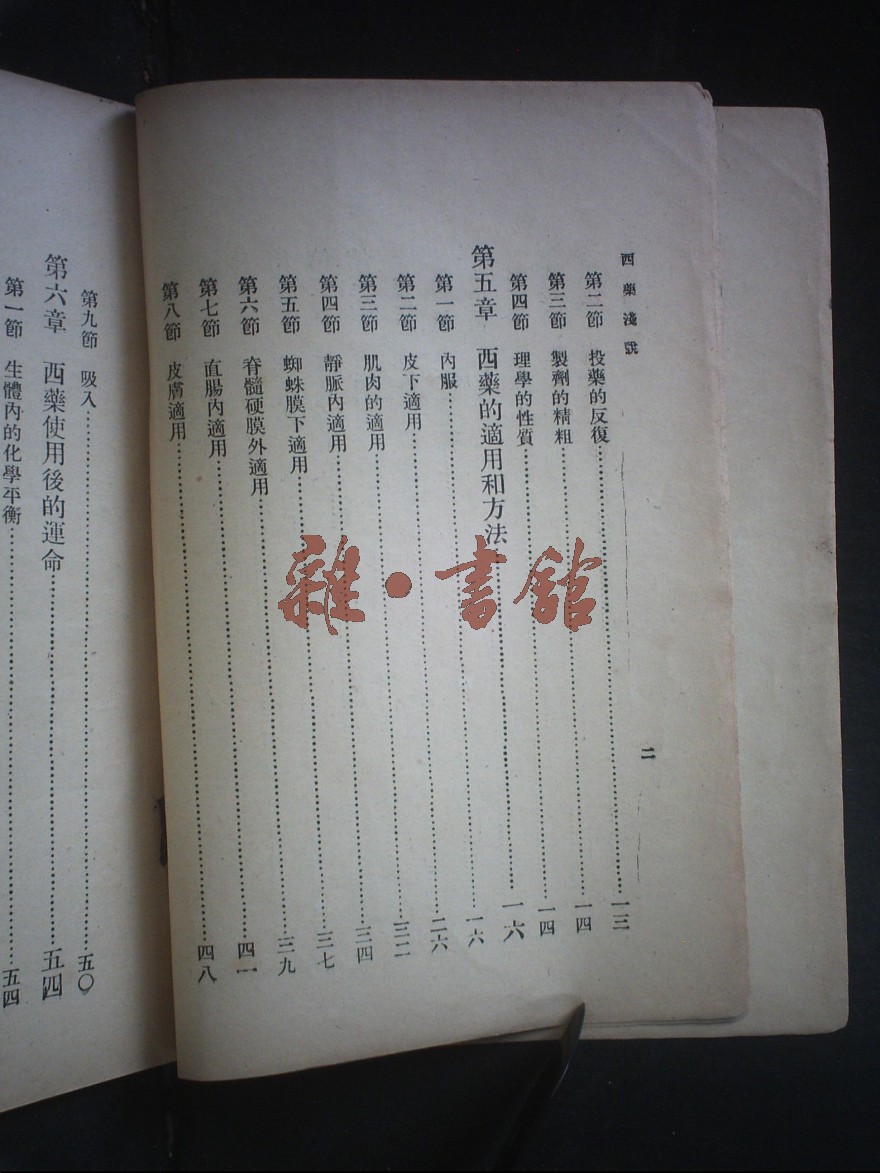 西藥淺說
二
第二節 投藥的反復……………一三
第三節 製劑的精粗……………一四
第四節 理學的性質……………一四
第五章 西藥的適用和方法……………一六
第一節 內服……………一六
第二節 皮下適用……………二六
第三節 肌肉的適用……………三二
第四節 靜脈內適用……………三四
第五節 蜘蛛膜下適用……………三七
第六節 脊髓硬膜外適用……………三九
第七節 直腸內適用……………四一
第八節 皮膚適用……………四八
第九節 吸入……………五〇
第六章 西藥使用後的運命……………五四
第一節 生體內的化學平衡……………五四
雜·書館